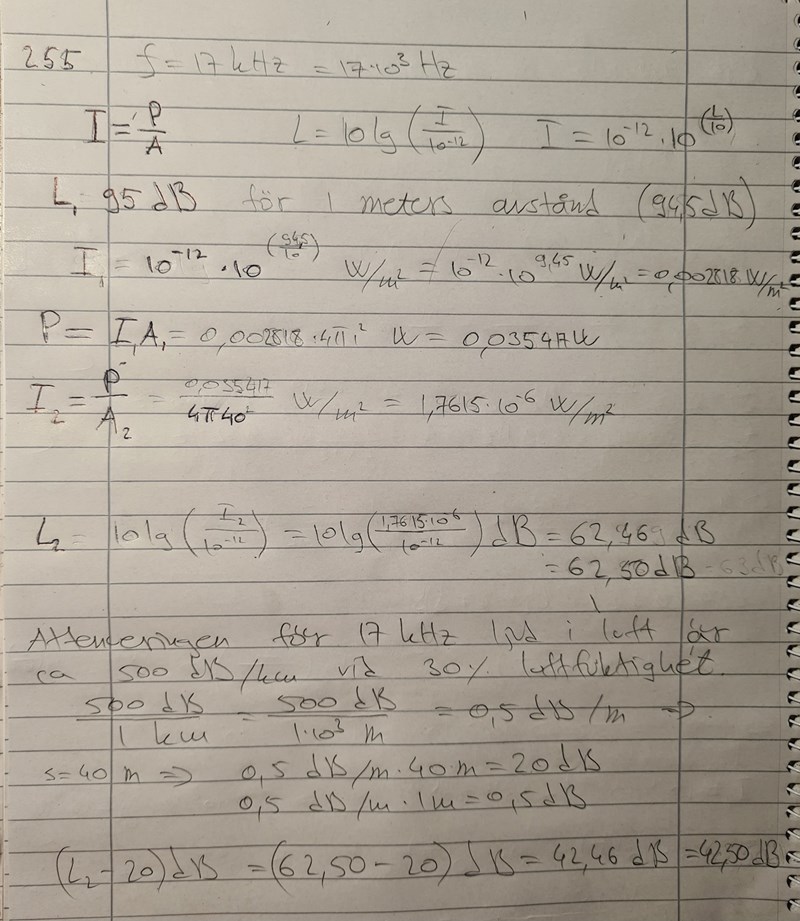 255 f = 17 kHz = 17·10³ Hz
I = P/A L = 10 lg (I/10⁻¹²) I = 10⁻¹² · 10^(L/10)
L₁ 95 dB för 1 meters avstånd (94,5 dB)
I₁ = 10⁻¹² · 10^(94,5/10) W/m² = 10⁻¹² · 10^9,45 W/m² = 0,002818 W/m²
P = I₁A₁ = 0,002818 · 4π1² W = 0,035417 W
I₂ = P/A₂ = 0,035417/4π40² W/m² = 1,7615·10⁻⁶ W/m²
L₂ = 10 lg (I₂/10⁻¹²) = 10 lg (1,7615·10⁻⁶/10⁻¹²) dB = 62,46 dB
= 62,50 dB - 63 dB
Attenueringen för 17 kHz ljud i luft är
ca 500 dB/km vid 30% luftfuktighet.
500 dB/1 km = 500 dB/1·10³ m = 0,5 dB/m ⇒
s = 40 m ⇒ 0,5 dB/m · 40 m = 20 dB
0,5 dB/m · 1m = 0,5 dB
(L₂ - 20) dB = (62,50 - 20) dB = 42,46 dB = 42,50 dB